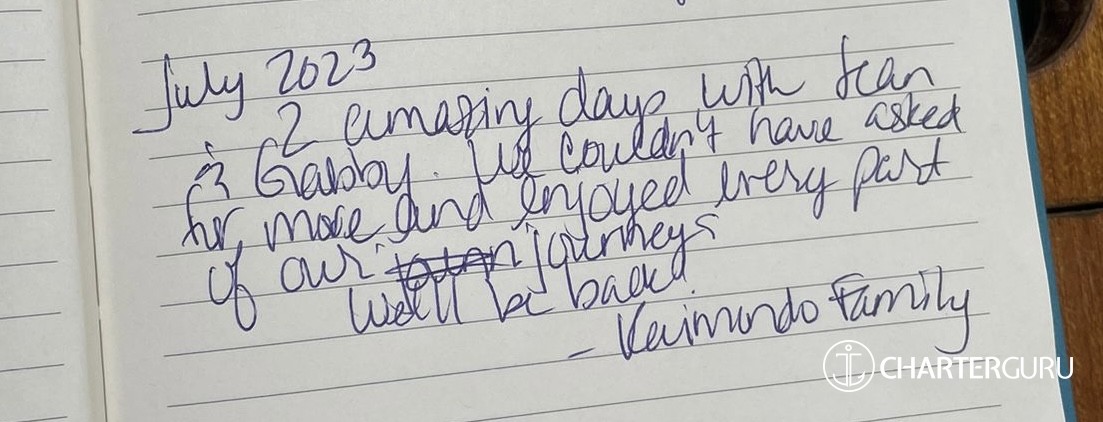 July 2023
2 amazing days with Sean
& Gabby. We couldn't have asked
for more and enjoyed every part
of our journeys
We'll be back!
- Raimondo Family
CHARTERGURU